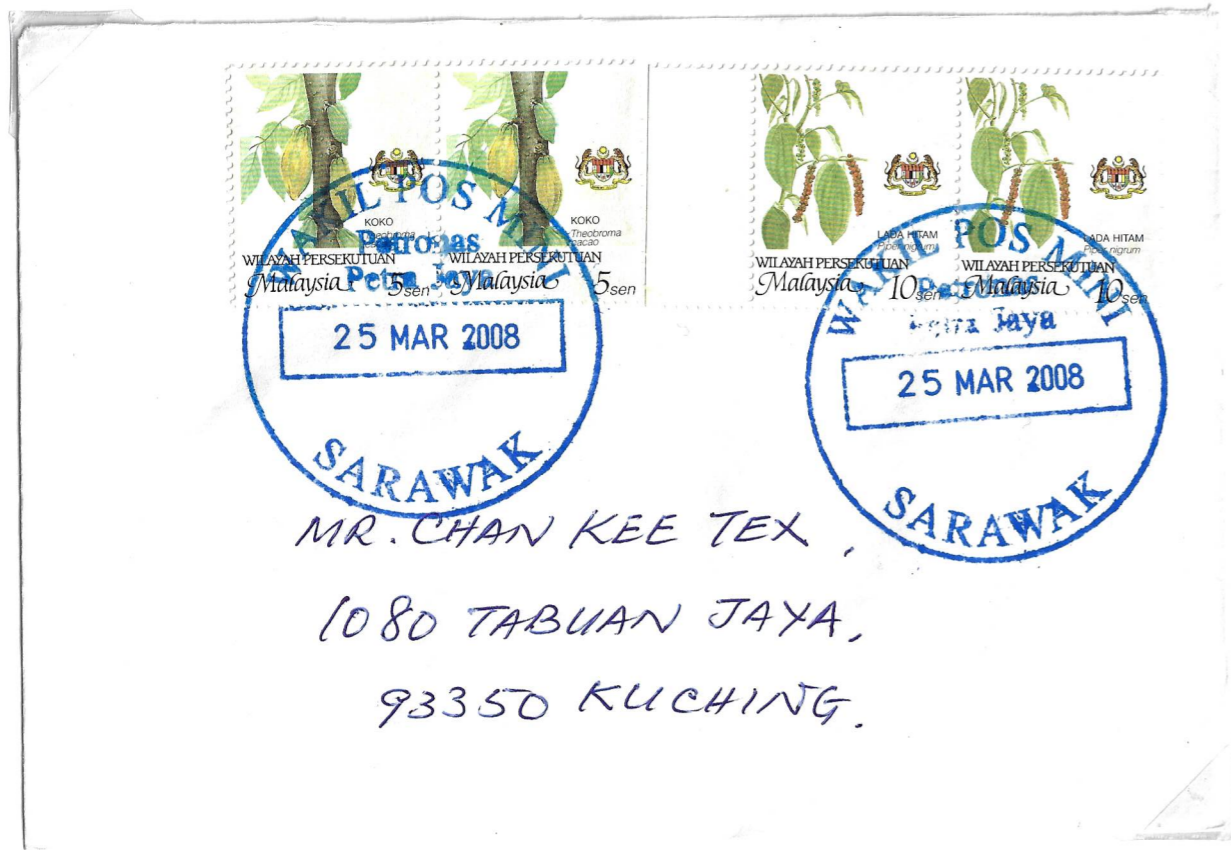 KOKO
Theobroma
WILAYAH PERSEKUTUAN
Malaysia 5sen
KOKO
Theobroma
cacao
WILAYAH PERSEKUTUAN
Malaysia 5sen
LADA HITAM
Piper nigrum
WILAYAH PERSEKUTUAN
Malaysia 10sen
LADA HITAM
Piper nigrum
WILAYAH PERSEKUTUAN
Malaysia 10sen
WAKIL POS MINI
Petronas
Petra Jaya
25 MAR 2008
SARAWAK
WAKIL POS MINI
Petronas
Petra Jaya
25 MAR 2008
SARAWAK
MR. CHAN KEE TEX,
1080 TABUAN JAYA,
93350 KUCHING.